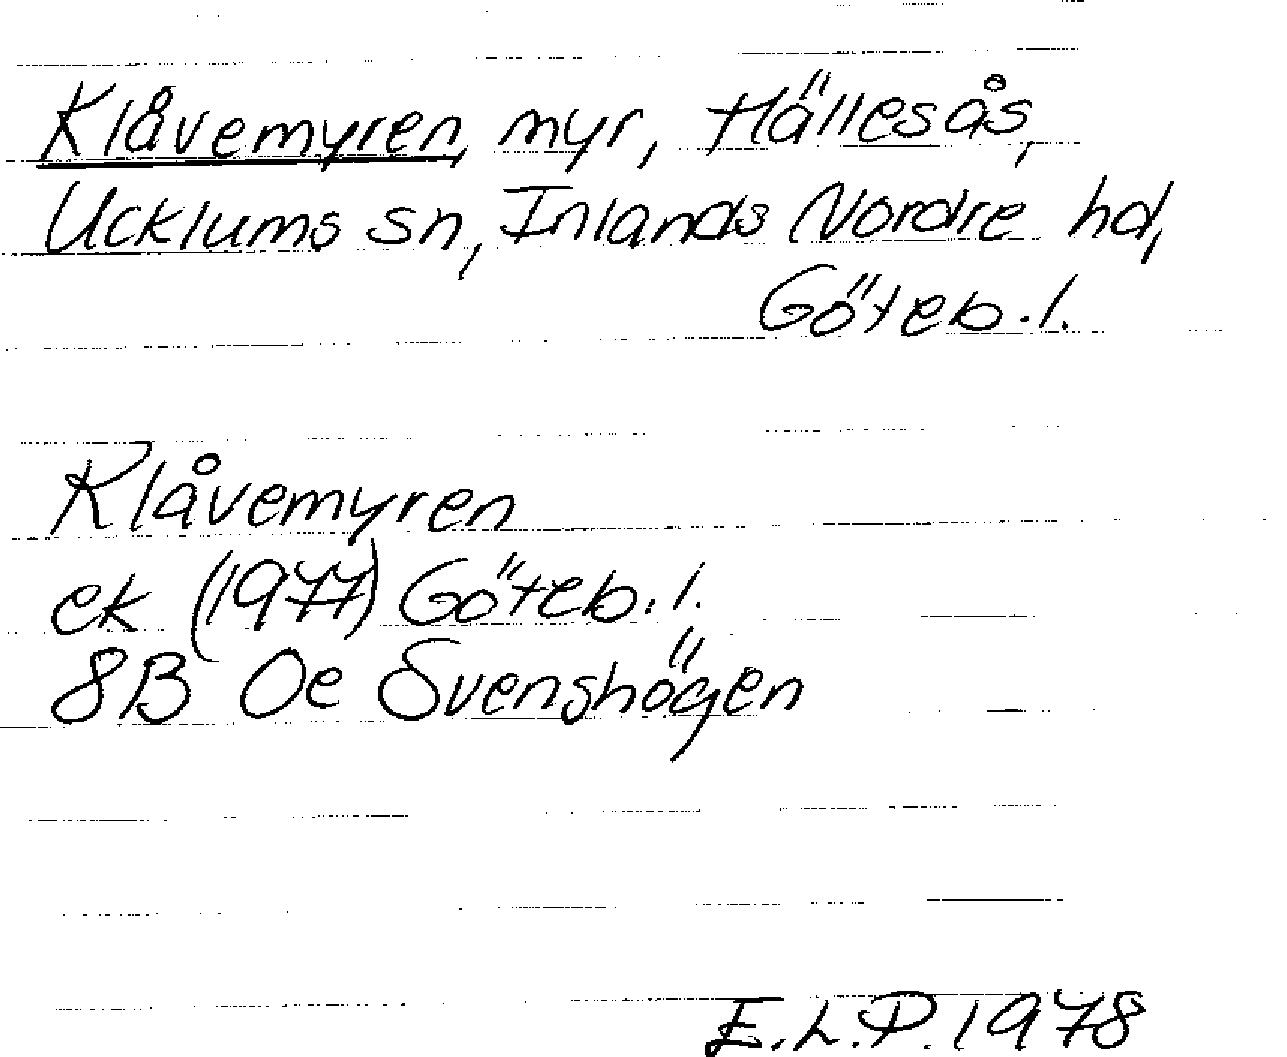 Klåvemyren, myr, Hällesås,
Ucklums sn, Inlands Nordre hd,
Göteb. l.
Klåvemyren
ek (1977) Göteb. l.
8B Oe Svenshögen
E.L.P. 1978